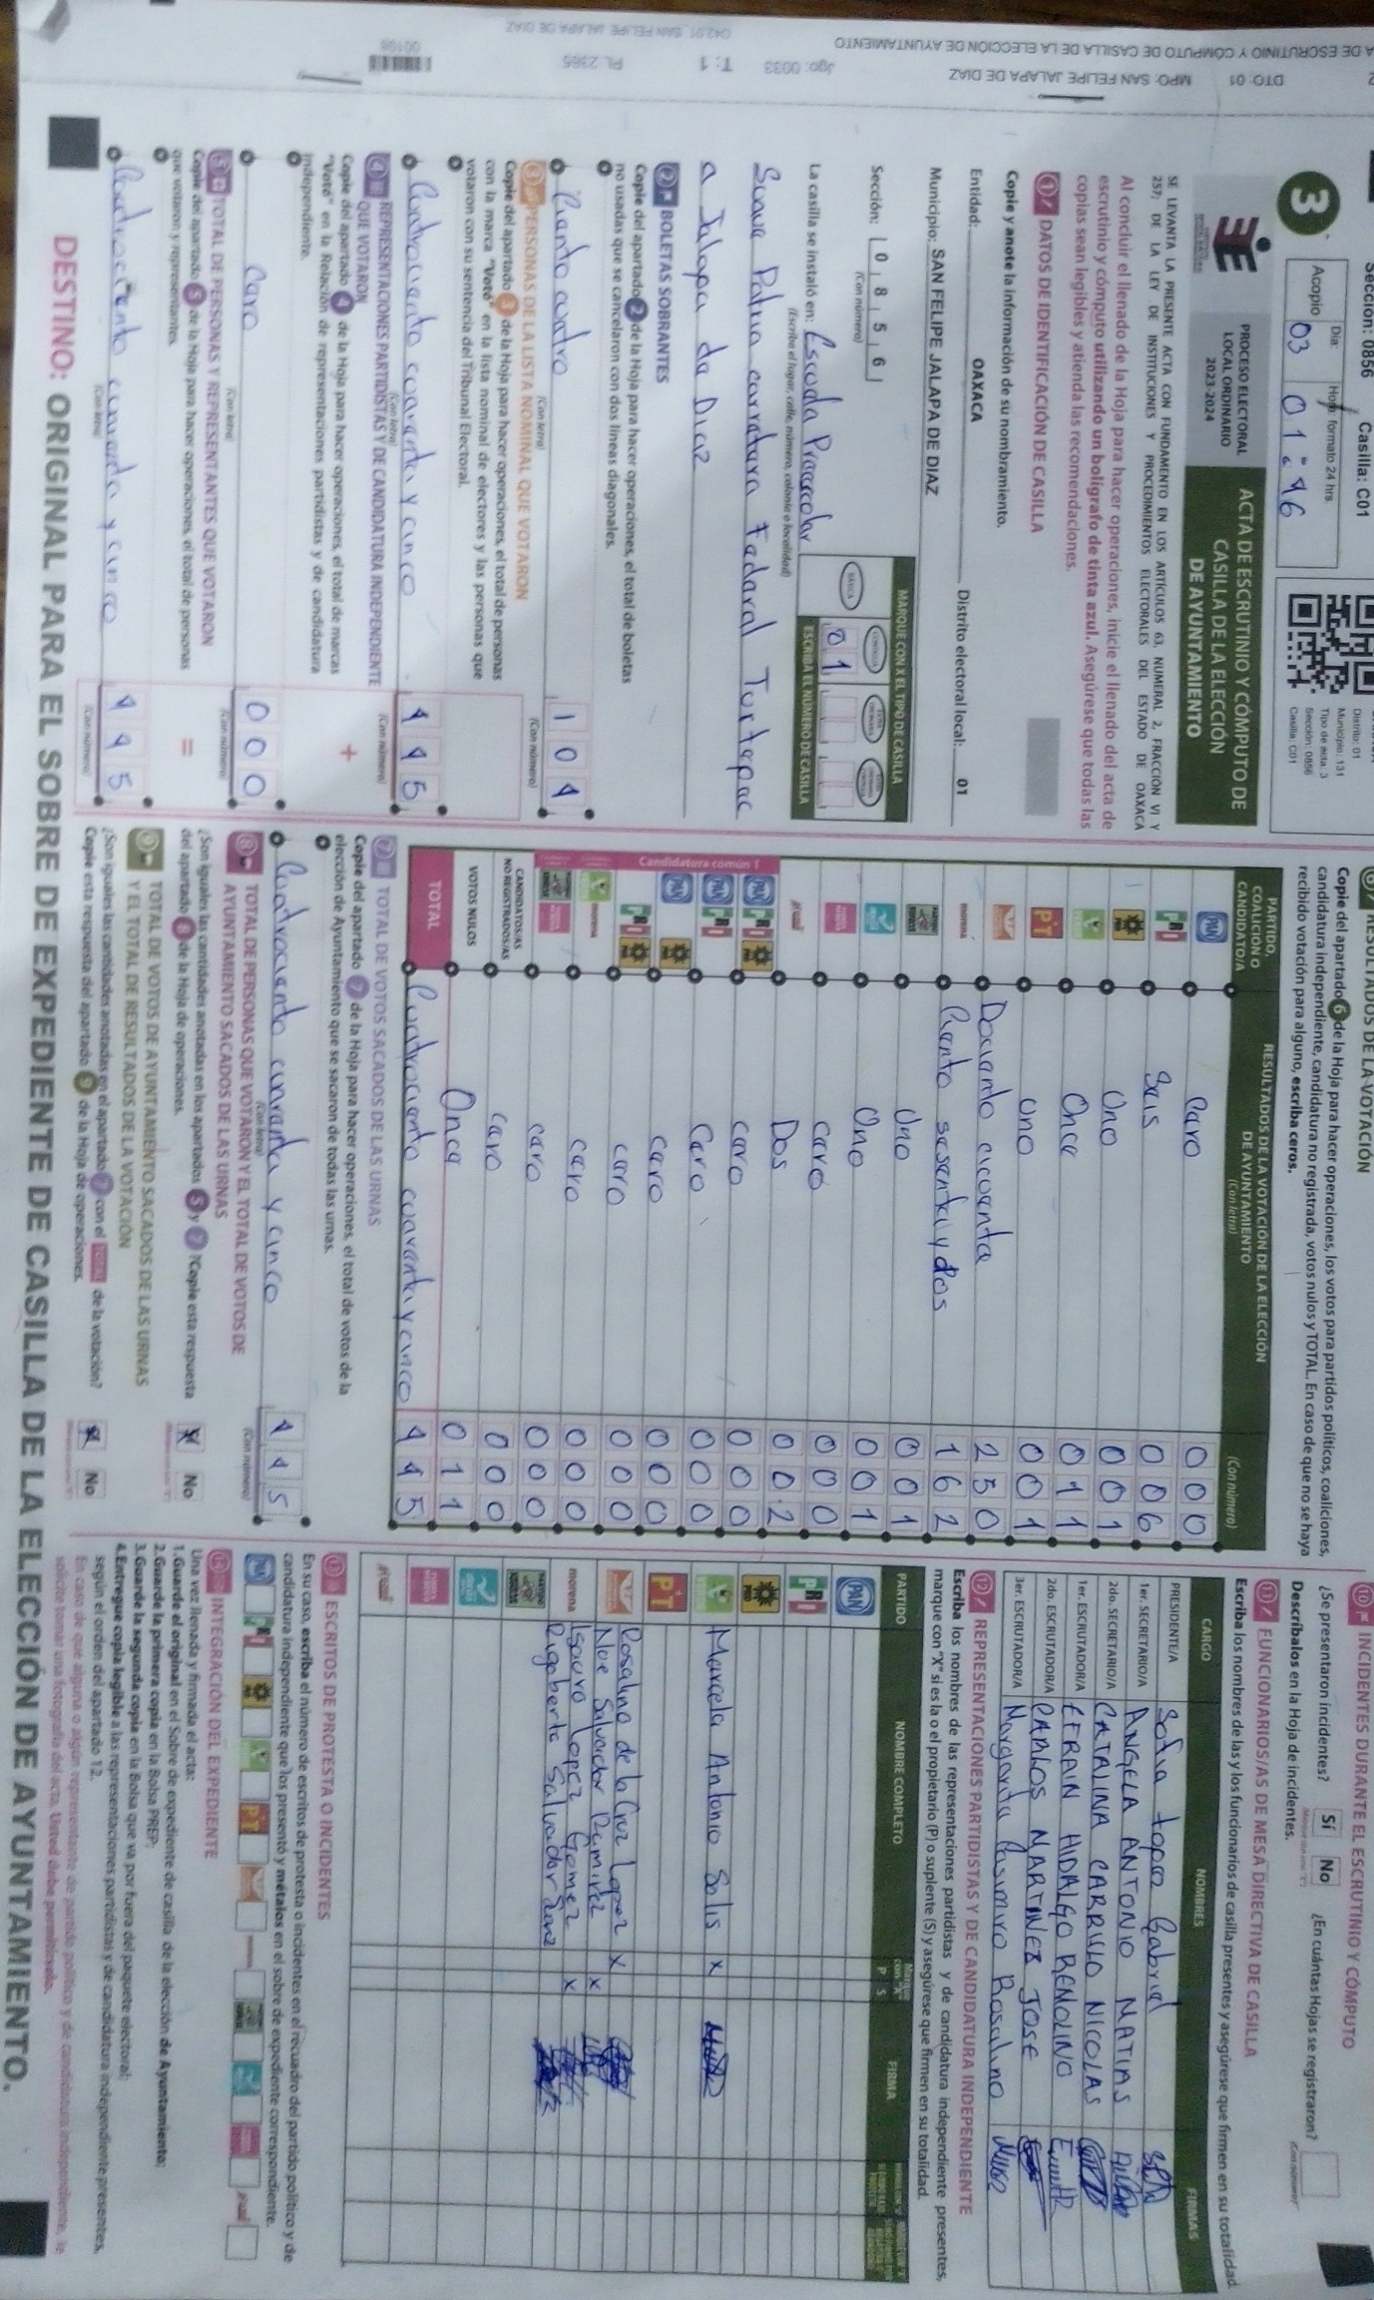 Sección: 0856 Casilla: C01
DTO: 01 MPO: SAN FELIPE JALAPA DE DIAZ
A DE ESCRUTINIO Y CÓMPUTO DE CASILLA DE LA ELECCIÓN DE AYUNTAMIENTO
Jgo: 0033 T: 1 PL 2365
042.01_SAN FELIPE JALAPA DE DIAZ
00108
3
Acopio
Día: Hora formato 24 hrs
03 01:46
Distrito: 01
Municipio: 131
Tipo de acta: 3
Sección: 0856
Casilla: C01
PROCESO ELECTORAL
LOCAL ORDINARIO
2023-2024
ACTA DE ESCRUTINIO Y CÓMPUTO DE
CASILLA DE LA ELECCIÓN
DE AYUNTAMIENTO
SE LEVANTA LA PRESENTE ACTA CON FUNDAMENTO EN LOS ARTÍCULOS 63, NUMERAL 2, FRACCIÓN VI Y
257; DE LA LEY DE INSTITUCIONES Y PROCEDIMIENTOS ELECTORALES DEL ESTADO DE OAXACA
Al concluir el llenado de la Hoja para hacer operaciones, inicie el llenado del acta de
escrutinio y cómputo utilizando un bolígrafo de tinta azul. Asegúrese que todas las
copias sean legibles y atienda las recomendaciones.
1 DATOS DE IDENTIFICACIÓN DE CASILLA
Copie y anote la información de su nombramiento.
Entidad: OAXACA Distrito electoral local: 01
Municipio: SAN FELIPE JALAPA DE DIAZ
Sección: 0 8 5 6
(Con número)
MARQUE CON X EL TIPO DE CASILLA
BÁSICA
01
ESCRIBA EL NÚMERO DE CASILLA
La casilla se instaló en: Escuela Preescolar
(Escriba el lugar, calle, número, colonia o localidad)
Suave Patria carretera Federal Tuxtepec
a Jalapa de Diaz
2 BOLETAS SOBRANTES
Copie del apartado 2 de la Hoja para hacer operaciones, el total de boletas
no usadas que se cancelaron con dos líneas diagonales.
Ciento cuatro 1 0 4
(Con letra) (Con número)
3 PERSONAS DE LA LISTA NOMINAL QUE VOTARON
Copie del apartado 3 de la Hoja para hacer operaciones, el total de personas
con la marca "Votó" en la lista nominal de electores y las personas que
votaron con su sentencia del Tribunal Electoral.
Cuatrociento cuarenta y cinco 4 4 5
(Con letra) (Con número)
4 REPRESENTACIONES PARTIDISTAS Y DE CANDIDATURA INDEPENDIENTE
QUE VOTARON
Copie del apartado 4 de la Hoja para hacer operaciones, el total de marcas
"Votó" en la Relación de representaciones partidistas y de candidatura
independiente. +
Cero 0 0 0
(Con letra) (Con número)
5 TOTAL DE PERSONAS Y REPRESENTANTES QUE VOTARON
Copie del apartado 5 de la Hoja para hacer operaciones, el total de personas
que votaron y representantes. =
Cuatrociento cuarenta y cinco 4 4 5
(Con letra) (Con número)
6 RESULTADOS DE LA VOTACIÓN
Copie del apartado 6 de la Hoja para hacer operaciones, los votos para partidos políticos, coaliciones,
candidatura independiente, candidatura no registrada, votos nulos y TOTAL. En caso de que no se haya
recibido votación para alguno, escriba ceros.
PARTIDO, COALICIÓN O CANDIDATO/A RESULTADOS DE LA VOTACIÓN DE LA ELECCIÓN DE AYUNTAMIENTO (Con letra) (Con número)
PAN Cero 0 0 0
PRI Seis 0 0 6
PRD Uno 0 0 1
Once 0 1 1
PT uno 0 0 1
Dociento cicuenta 2 5 0
morena Ciento sesenta y dos 1 6 2
Uno 0 0 1
Uno 0 0 1
cero 0 0 0
Dos 0 0 2
Candidatura común 1
PAN PRI PRD cero 0 0 0
PAN PRI Cero 0 0 0
PAN PRD cero 0 0 0
PRI PRD cero 0 0 0
morena cero 0 0 0
cero 0 0 0
CANDIDATOS/AS NO REGISTRADOS/AS cero 0 0 0
VOTOS NULOS Once 0 1 1
TOTAL Cuatrociento cuarenta y cinco 4 4 5
7 TOTAL DE VOTOS SACADOS DE LAS URNAS
Copie del apartado 7 de la Hoja para hacer operaciones, el total de votos de la
elección de Ayuntamiento que se sacaron de todas las urnas.
Cuatrociento cuarenta y cinco 4 4 5
(Con letra) (Con número)
8 TOTAL DE PERSONAS QUE VOTARON Y EL TOTAL DE VOTOS DE
AYUNTAMIENTO SACADOS DE LAS URNAS
¿Son iguales las cantidades anotadas en los apartados 5 y 7? Copie esta respuesta
del apartado 8 de la Hoja de operaciones. Sí No
9 TOTAL DE VOTOS DE AYUNTAMIENTO SACADOS DE LAS URNAS
Y EL TOTAL DE RESULTADOS DE LA VOTACIÓN
¿Son iguales las cantidades anotadas en el apartado 7 con el TOTAL de la votación?
Copie esta respuesta del apartado 9 de la Hoja de operaciones. Sí No
10 INCIDENTES DURANTE EL ESCRUTINIO Y CÓMPUTO
¿Se presentaron incidentes? Sí No ¿En cuántas Hojas se registraron?
Descríbalos en la Hoja de incidentes.
11 FUNCIONARIOS/AS DE MESA DIRECTIVA DE CASILLA
Escriba los nombres de las y los funcionarios de casilla presentes y asegúrese que firmen en su totalidad.
CARGO NOMBRES FIRMAS
PRESIDENTE/A Sofia topeo Gabriel
1er. SECRETARIO/A ANGELA ANTONIO MATIAS
2do. SECRETARIO/A CATALINA CARRILLO NICOLAS
1er. ESCRUTADOR/A EFRAIN HIDALGO RENOLINO
2do. ESCRUTADOR/A CARLOS MARTINEZ JOSE
3er. ESCRUTADOR/A Margarita Casimiro Rosalino
12 REPRESENTACIONES PARTIDISTAS Y DE CANDIDATURA INDEPENDIENTE
Escriba los nombres de las representaciones partidistas y de candidatura independiente presentes,
marque con "X" si es la o el propietario (P) o suplente (S) y asegúrese que firmen en su totalidad.
PARTIDO NOMBRE COMPLETO P S FIRMA
PAN
PRI
PRD
Marcela Antonio Solis X
PT
Rosalino de la Cruz Lopez X
Noe Salvador Ramirez X
morena Isauro Lopez Gomez X
Rigoberto Salvador
13 ESCRITOS DE PROTESTA O INCIDENTES
En su caso, escriba el número de escritos de protesta o incidentes en el recuadro del partido político y de
candidatura independiente que los presentó y métalos en el sobre de expediente correspondiente.
INTEGRACIÓN DEL EXPEDIENTE
Una vez llenada y firmada el acta:
1. Guarde el original en el Sobre de expediente de casilla de la elección de Ayuntamiento;
2. Guarde la primera copia en la Bolsa PREP;
3. Guarde la segunda copia en la Bolsa que va por fuera del paquete electoral;
4. Entregue copia legible a las representaciones partidistas y de candidatura independiente presentes,
según el orden del apartado 12.
En caso de que alguna o algún representante de partido político y de candidatura independiente, le
solicite tomar una fotografía del acta, Usted debe permitírselo.
DESTINO: ORIGINAL PARA EL SOBRE DE EXPEDIENTE DE CASILLA DE LA ELECCIÓN DE AYUNTAMIENTO.